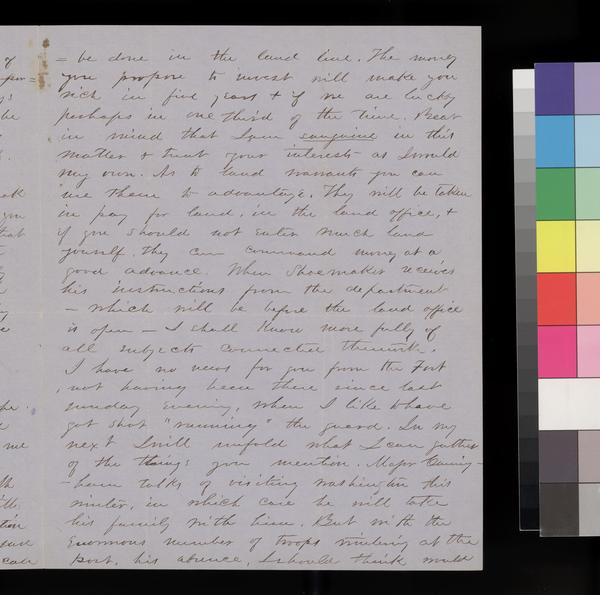 = be done in the land line. The money
you propose to invest will make you
rich in five years + if we are lucky
perhaps in one third of the time. Bear
in mind that I am sanguine in this
matter & trust your interests as I would
my own. As to land warrants you can
use them to advantage. They will be taken
in pay for land, in the land office, +
if you should not enter much land
yourself, they can command money at a
good advance. When Shoemaker receives
his instructions from the department
– which will be before the land office
is open – I shall know more fully of
all subjects connected therewith.
I have no news for you from the Fort
, not having been there since last
sunday evening, when I like to have
got shot "running" the guard. In my
next I will unfold what I can gather
of the things you mention. Major
talks of visiting washington this
winter, in which case he will take
his family with him. But with the
enormous number of troops wintering at the
post, his absence, I should think would